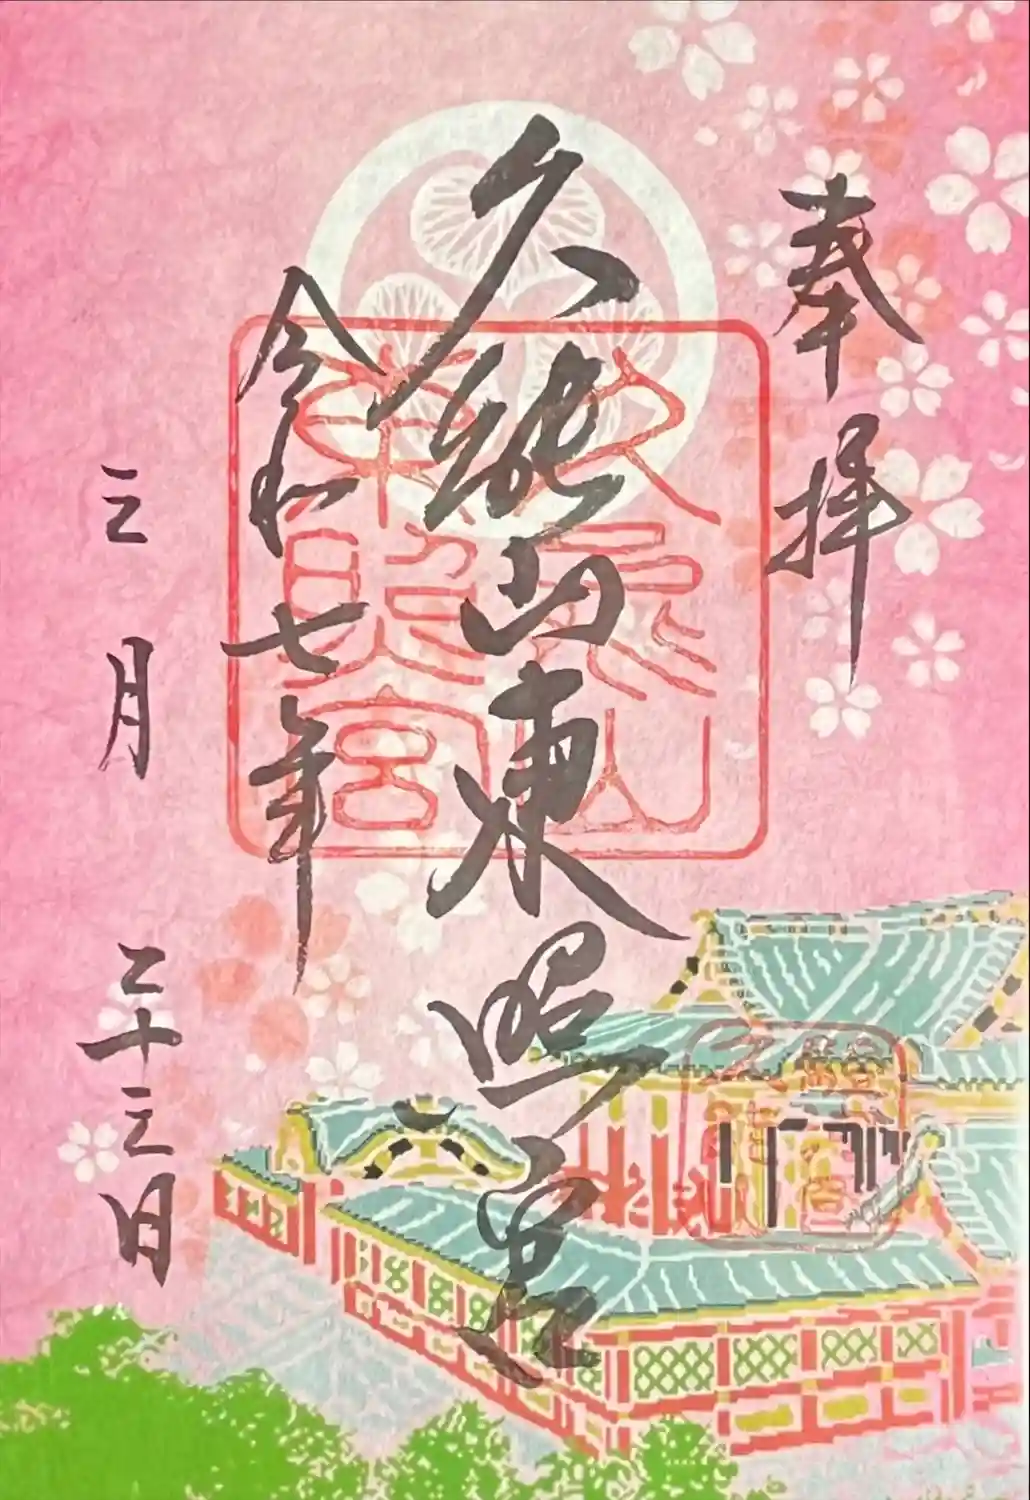 奉拝
久能山東照宮
久能山
東照宮
令和七年
三月二十三日